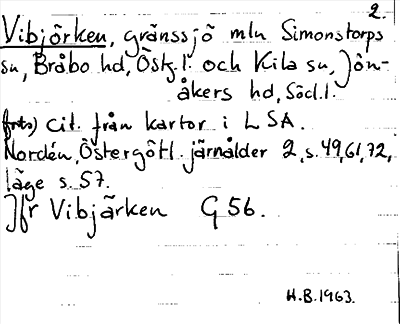 2.
Vibjörken, gränssjö mln Simonstorps
sn, Bråbo hd, Östg.l. och Kila sn, Jön-
åkers hd, Södl.l.
frts) cit. från kartor i LSA.
Nordén, Östergötl. järnålder 2, s. 49, 61, 72,
läge s. 57.
Jfr Vibjärken G 56.
H.B. 1963.